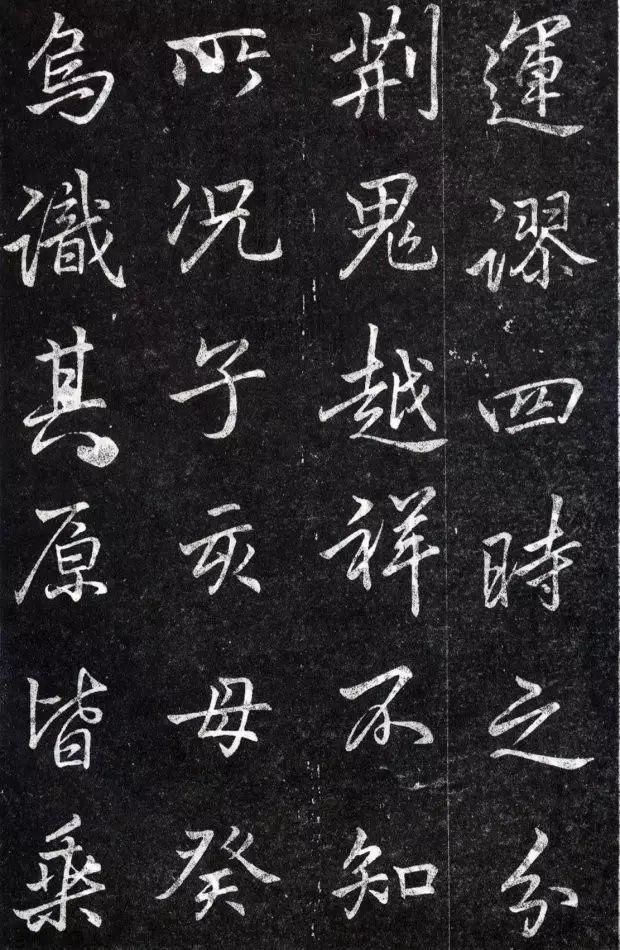 運謬四時之分
荆鬼越祥不知
所況子亥母癸
烏識其原皆乘